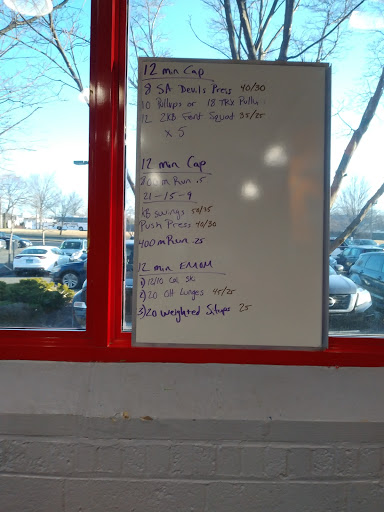 12 min Cap
8 SA Devils Press 40/30
10 Pullups or 18 TRX Pullu
12 2KB Front Squat 35/25
x 5
12 min Cap
800 m Run .5
21-15-9
KB Swings 50/35
Push Press 40/30
400 m Run .25
12 min EMOM
1) 12/10 Cal Ski
2) 20 OH Lunges 45/25
3) 20 Weighted Situps 25